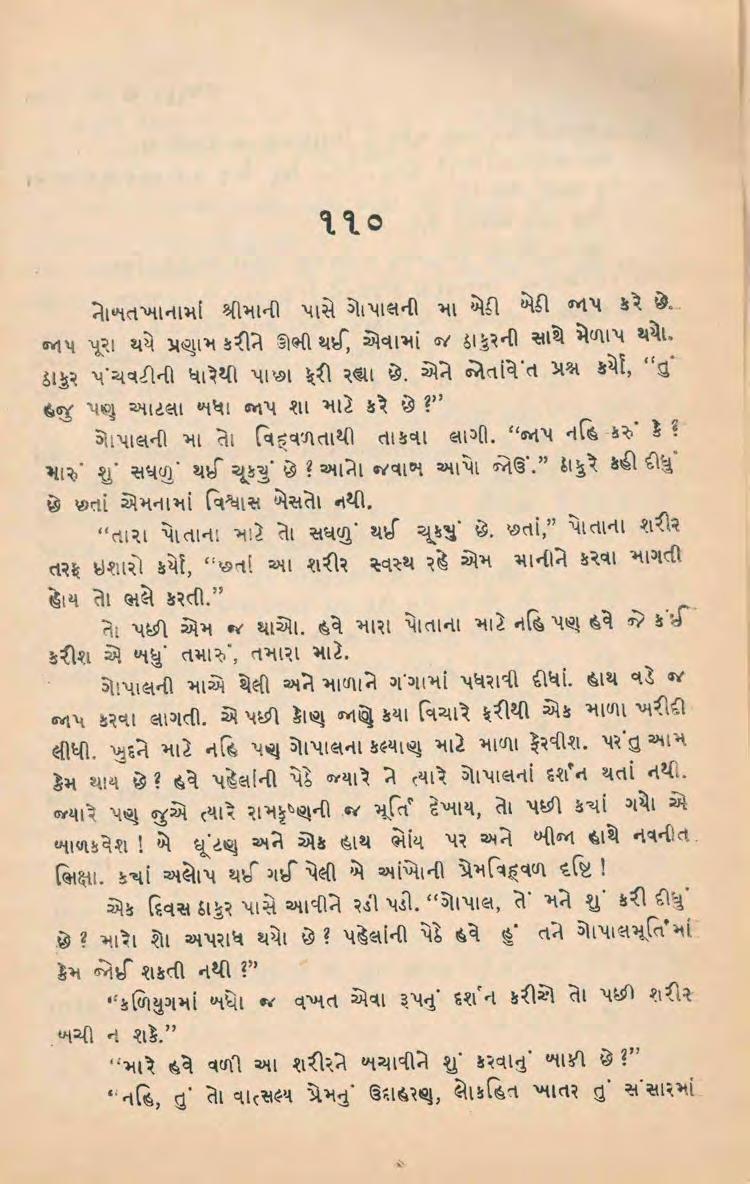 ૧૧૦
નોબતખાનામાં શ્રીમાની પાસે ગોપાલની મા બેઠી બેઠી જાપ કરે છે.
જાપ પૂરા થયે પ્રણામ કરીને ઊભી થઈ, એવામાં જ ઠાકુરની સાથે મેળાપ થયો.
ઠાકુર પંચવટીની ધારેથી પાછા ફરી રહ્યા છે. એને જોતાંવેંત પ્રશ્ન કર્યો, “તું
હજુ પણ આટલા બધા જાપ શા માટે કરે છે ?”
ગોપાલની મા તો વિહ્‌વળતાથી તાકવા લાગી. “જાપ નહિ કરું કે ?
મારું શું સઘળું થઈ ચૂકયું છે ? આનો જવાબ આપો જોઉં.” ઠાકુરે કહી દીધું
છે છતાં એમનામાં વિશ્વાસ બેસતો નથી.
“તારા પોતાના માટે તો સઘળું થઈ ચૂકયું છે. છતાં,” પોતાના શરીર
તરફ ઇશારો કર્યો, “છતાં આ શરીર સ્વસ્થ રહે એમ માનીને કરવા માગતી
હોય તો ભલે કરતી.”
તો પછી એમ જ થાઓ. હવે મારા પોતાના માટે નહિ પણ હવે જે કંઈ
કરીશ એ બધું તમારું, તમારા માટે.
ગોપાલની માએ થેલી અને માળાને ગંગામાં પધરાવી દીધાં. હાથ વડે જ
જાપ કરવા લાગતી. એ પછી કોણ જાણે કયા વિચારે ફરીથી એક માળા ખરીદી
લીધી. ખુદને માટે નહિ પણ ગોપાલના કલ્યાણ માટે માળા ફેરવીશ. પરંતુ આમ
કેમ થાય છે ? હવે પહેલાંની પેઠે જ્યારે ને ત્યારે ગોપાલનાં દર્શન થતાં નથી.
જ્યારે પણ જુએ ત્યારે રામકૃષ્ણની જ મૂર્તિ દેખાય, તો પછી કયાં ગયો એ
બાળકવેશ ! બે ઘૂંટણ અને એક હાથ ભોંય પર અને બીજા હાથે નવનીત
ભિક્ષા. કયાં અલોપ થઈ ગઈ પેલી બે આંખોની પ્રેમવિહ્‌વળ દૃષ્ટિ !
એક દિવસ ઠાકુર પાસે આવીને રડી પડી. “ગોપાલ, તેં મને શું કરી દીધું
છે ? મારો શો અપરાધ થયો છે ? પહેલાંની પેઠે હવે હું તને ગોપાલમૂર્તિમાં
કેમ જોઈ શકતી નથી ?”
“કળિયુગમાં બધો જ વખત એવા રૂપનું દર્શન કરીએ તો પછી શરીર
બચી ન શકે.”
“મારે હવે વળી આ શરીરને બચાવીને શું કરવાનું બાકી છે ?”
“નહિ, તું તો વાત્સલ્ય પ્રેમનું ઉદાહરણ, લોકહિત ખાતર તું સંસારમાં